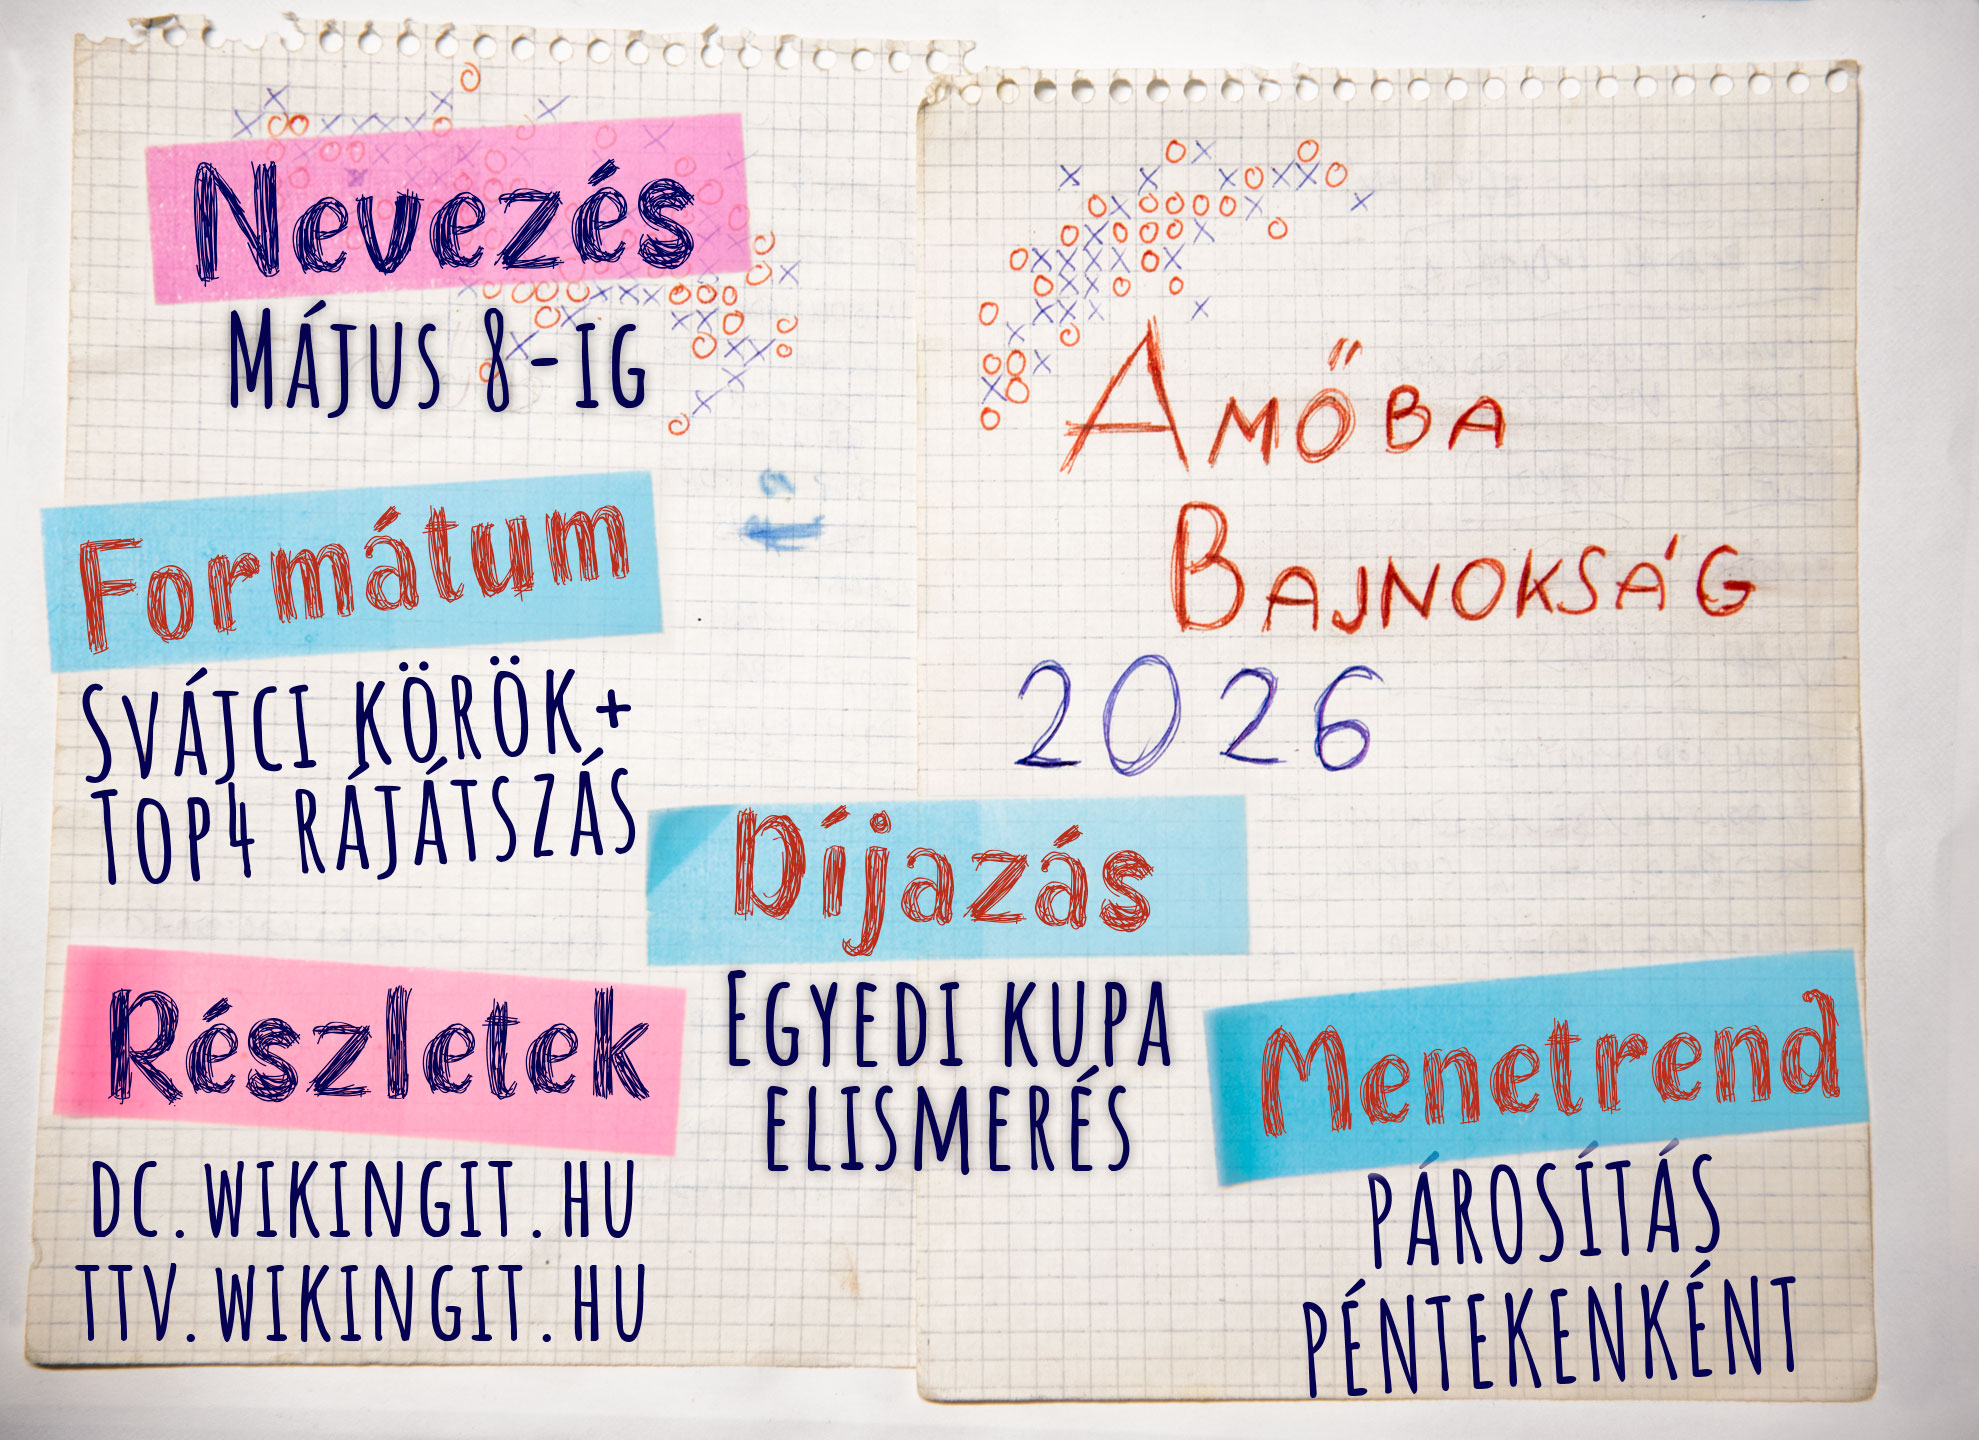 Nevezés
Május 8-ig
Amőba
Bajnokság
2026
Formátum
Svájci körök+
Top4 rájátszás
Díjazás
Egyedi kupa
elismerés
Részletek
dc.wikingit.hu
ttv.wikingit.hu
Menetrend
párosítás
péntekenként